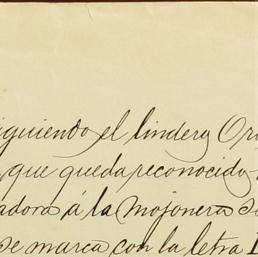 siguiendo el lindero Or
que queda reconocido
adora á la mojonera se
se marca con la letra